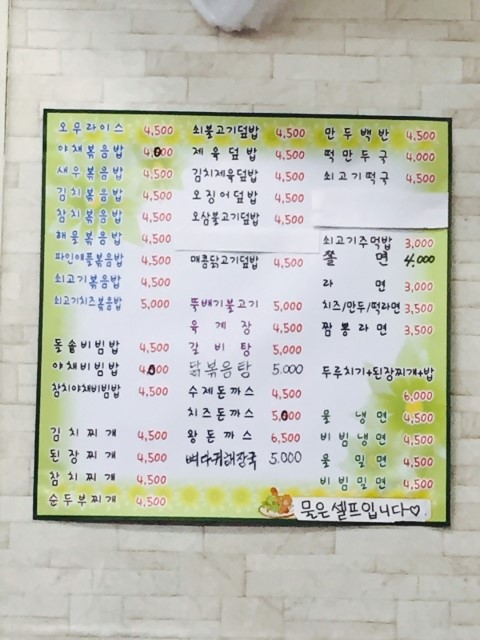 오무라이스 4,500
야채볶음밥 4,000
새우볶음밥 4,500
김치볶음밥 4,500
참치볶음밥 4,500
해물볶음밥 4,500
파인애플볶음밥 4,500
쇠고기볶음밥 4,500
쇠고기치즈볶음밥 5,000
돌솥비빔밥 4,500
야채비빔밥 4,000
참치야채비빔밥 4,500
김치찌개 4,500
된장찌개 4,500
참치찌개 4,500
순두부찌개 4,500
쇠불고기덮밥 4,500
제육덮밥 4,500
김치제육덮밥 4,500
오징어덮밥 4,500
오삼불고기덮밥 4,500
매콤닭고기덮밥 4,500
뚝배기불고기 5,000
육계장 4,500
갈비탕 5,000
닭볶음탕 5.000
수제돈까스 4,500
치즈돈까스 5,000
왕돈까스 6,500
뼈다귀해장국 5.000
만두백반 4,500
떡만두국 4,000
쇠고기떡국 4,500
쇠고기주먹밥 3,000
쫄면 4,000
라면 3,000
치즈/만두/떡라면 3,500
짬뽕라면 3,500
두루치기+된장찌개+밥
6,000
물냉면 4,500
비빔냉면 4,500
물밀면 4,500
비빔밀면 4,500
묵은 셀프입니다♡